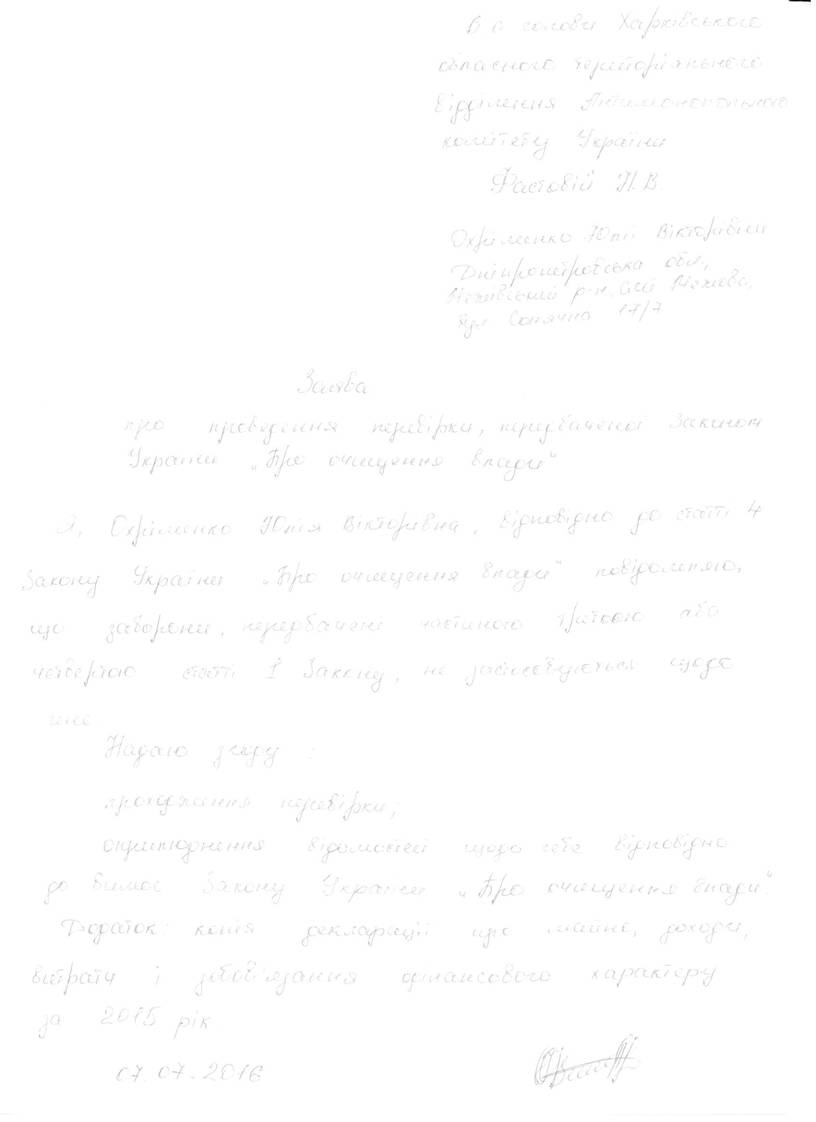 В о голови Харківського
обласного територіального
відділення Антимонопольного
комітету України
Фастовій Н.В.
Охріменко Юлії Вікторівни
Дніпропетровська обл.,
Межівський р-н, смт Межова,
вул Сонячна 17/7
Заява
про проведення перевірки, передбаченої Законом
України „Про очищення влади"
Я, Охріменко Юлія Вікторівна, відповідно до статті 4
Закону України „Про очищення влади" повідомляю,
що заборони, передбачені частиною третьою або
четвертою статті 1 Закону, не застосовуються щодо
мене
Надаю згоду :
проходження перевірки;
оприлюднення відомостей щодо себе відповідно
до вимог Закону України „Про очищення влади".
Додаток: копія декларації про майно, доходи,
витрати і зобов'язання фінансового характеру
за 2015 рік
07.07.2016